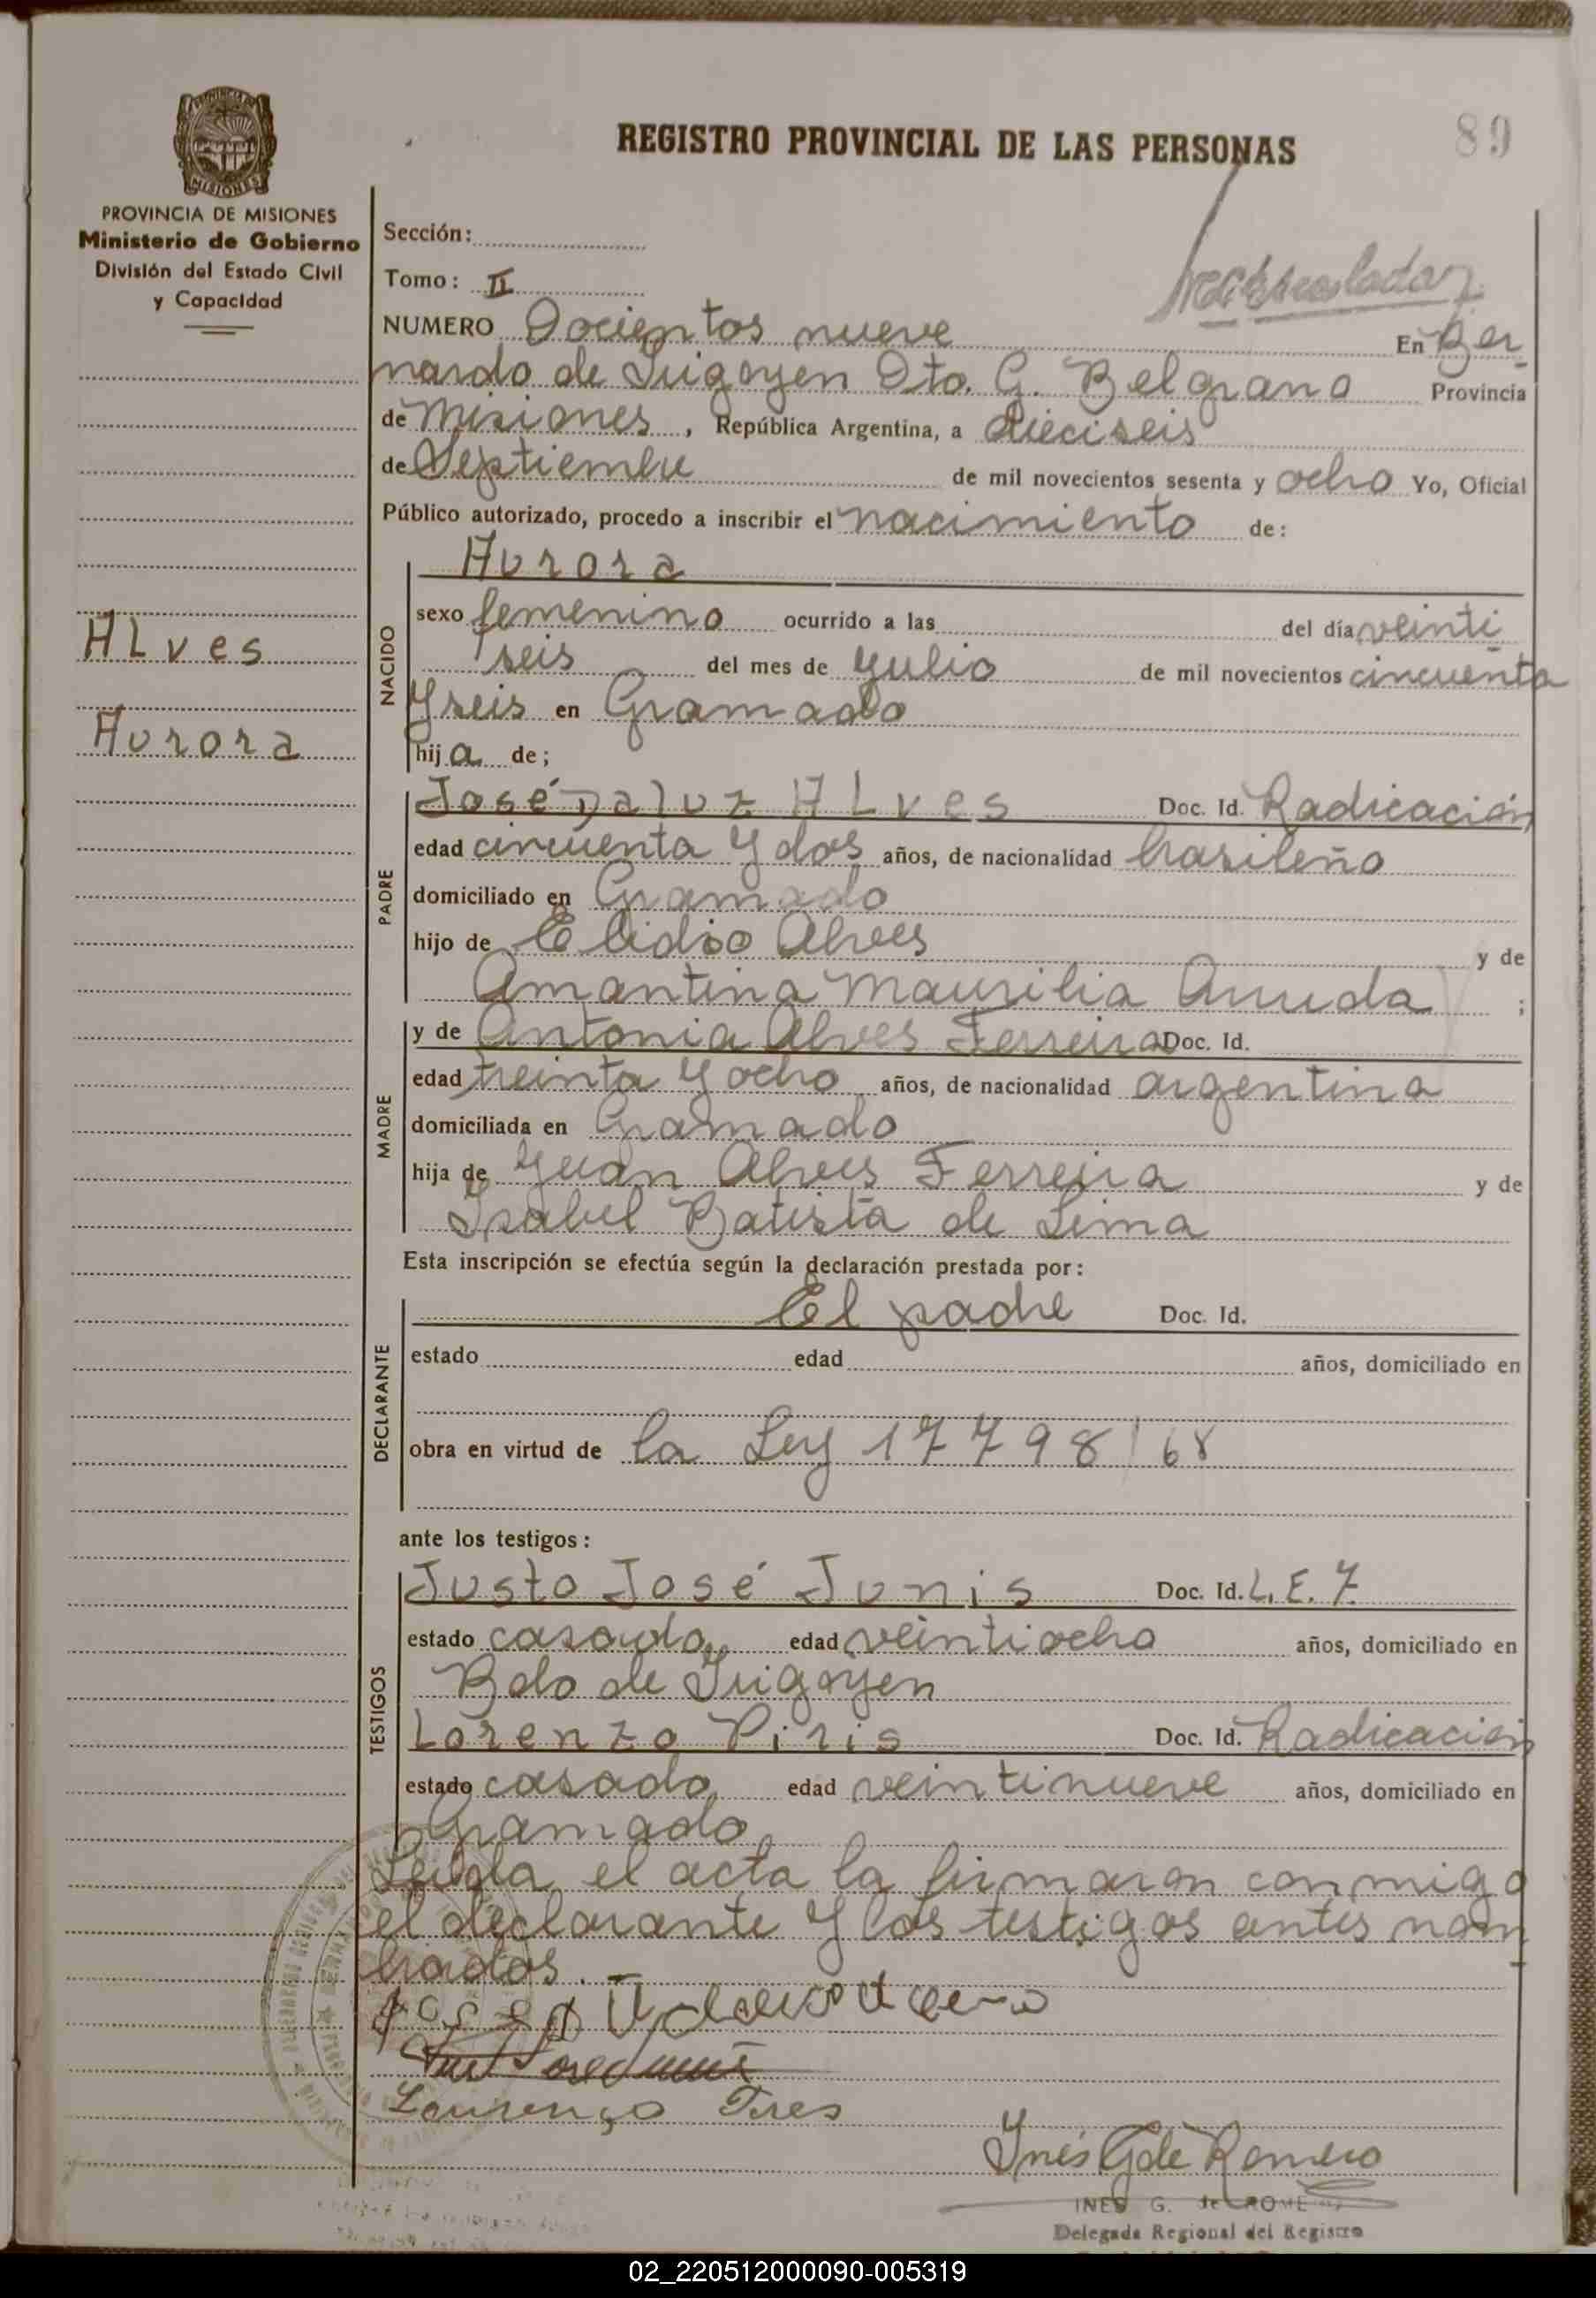 89
REGISTRO PROVINCIAL DE LAS PERSONAS
MISIONES
PROVINCIA DE MISIONES
Ministerio de Gobierno
División del Estado Civil
y Capacidad
Sección:
Tomo: II
NUMERO Docientos nueve En Ber
nardo de Irigoyen Dto. G. Belgrano Provincia
de Misiones, República Argentina, a dieciseis
de Septiembre de mil novecientos sesenta y ocho Yo, Oficial
Público autorizado, procedo a inscribir el nacimiento de:
ALves
Aurora
NACIDO
Aurora
sexo femenino ocurrido a las del día veinti
seis del mes de Julio de mil novecientos cincuenta
y seis en Gramado
hija de;
PADRE
José Daluz ALves Doc. Id. Radicación
edad cincuenta y dos años, de nacionalidad brasileño
domiciliado en Gramado
hijo de Elidio Alves y de
Amantina Maurilia Arruda ;
MADRE
y de Antonia Alves Ferreira Doc. Id.
edad treinta y ocho años, de nacionalidad argentina
domiciliada en Gramado
hija de Juan Alves Ferreira y de
Isabel Batista de Lima
Esta inscripción se efectúa según la declaración prestada por:
DECLARANTE
El padre Doc. Id.
estado edad años, domiciliado en
obra en virtud de la Ley 17798/68
ante los testigos:
TESTIGOS
Justo José Junis Doc. Id. L.E.7.
estado casado edad veintiocho años, domiciliado en
Bdo de Irigoyen
Lorenzo Piris Doc. Id. Radicación
estado casado edad veintinueve años, domiciliado en
Gramado
Leida el acta la firmaron conmigo
el declarante y los testigos antes nom
brados.
Lourenço Pires
Inés G de Romero
INES G. de ROMERO
Delegada Regional del Registro
02_220512000090-005319